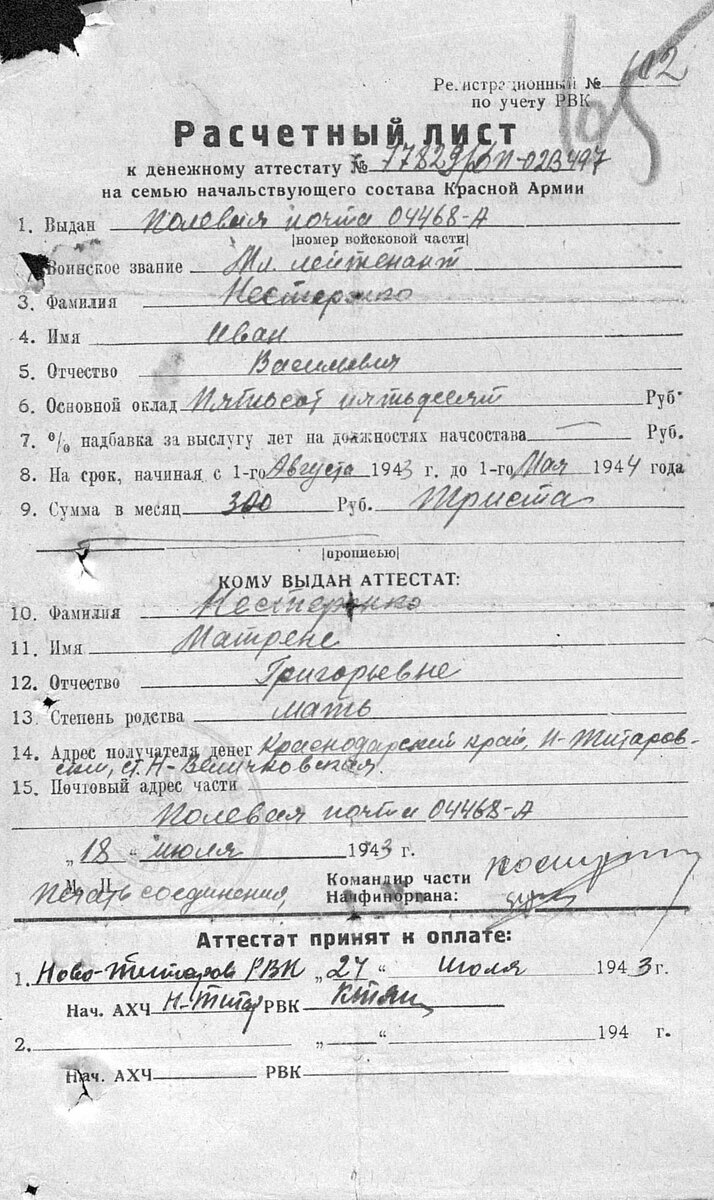 105
Регистрационный № 102
по учету РВК
Расчетный лист
к денежному аттестату №
на семью начальствующего состава Красной Армии
1. Выдан Полевая почта 04468-А
|номер войсковой части|
Воинское звание Мл. лейтенант
3. Фамилия Нестеренко
4. Имя Иван
5. Отчество Васильевич
6. Основной оклад Пятьсот пятьдесят Руб.
7. % надбавка за выслугу лет на должностях начсостава — Руб.
8. На срок, начиная с 1-го Августа 1943 г. до 1-го Мая 1944 года
9. Сумма в месяц 300 Руб. Триста
|прописью|
КОМУ ВЫДАН АТТЕСТАТ:
10. Фамилия Нестеренко
11. Имя Матрене
12. Отчество Григорьевне
13. Степень родства мать
14. Адрес получателя денег Краснодарский край, Н-Титаров-
ский, ст. Н-Величковская.
15. Почтовый адрес части
Полевая почта 04468-А
„18“ июля 1943 г.
М. П. Командир части
Печать соединения, Начфиноргана:
Аттестат принят к оплате:
1. Ново-Титаров РВК „27“ Июля 1943 г.
Нач. АХЧ Н-Титар РВК
2. „—“ 194 г.
Нач. АХЧ РВК